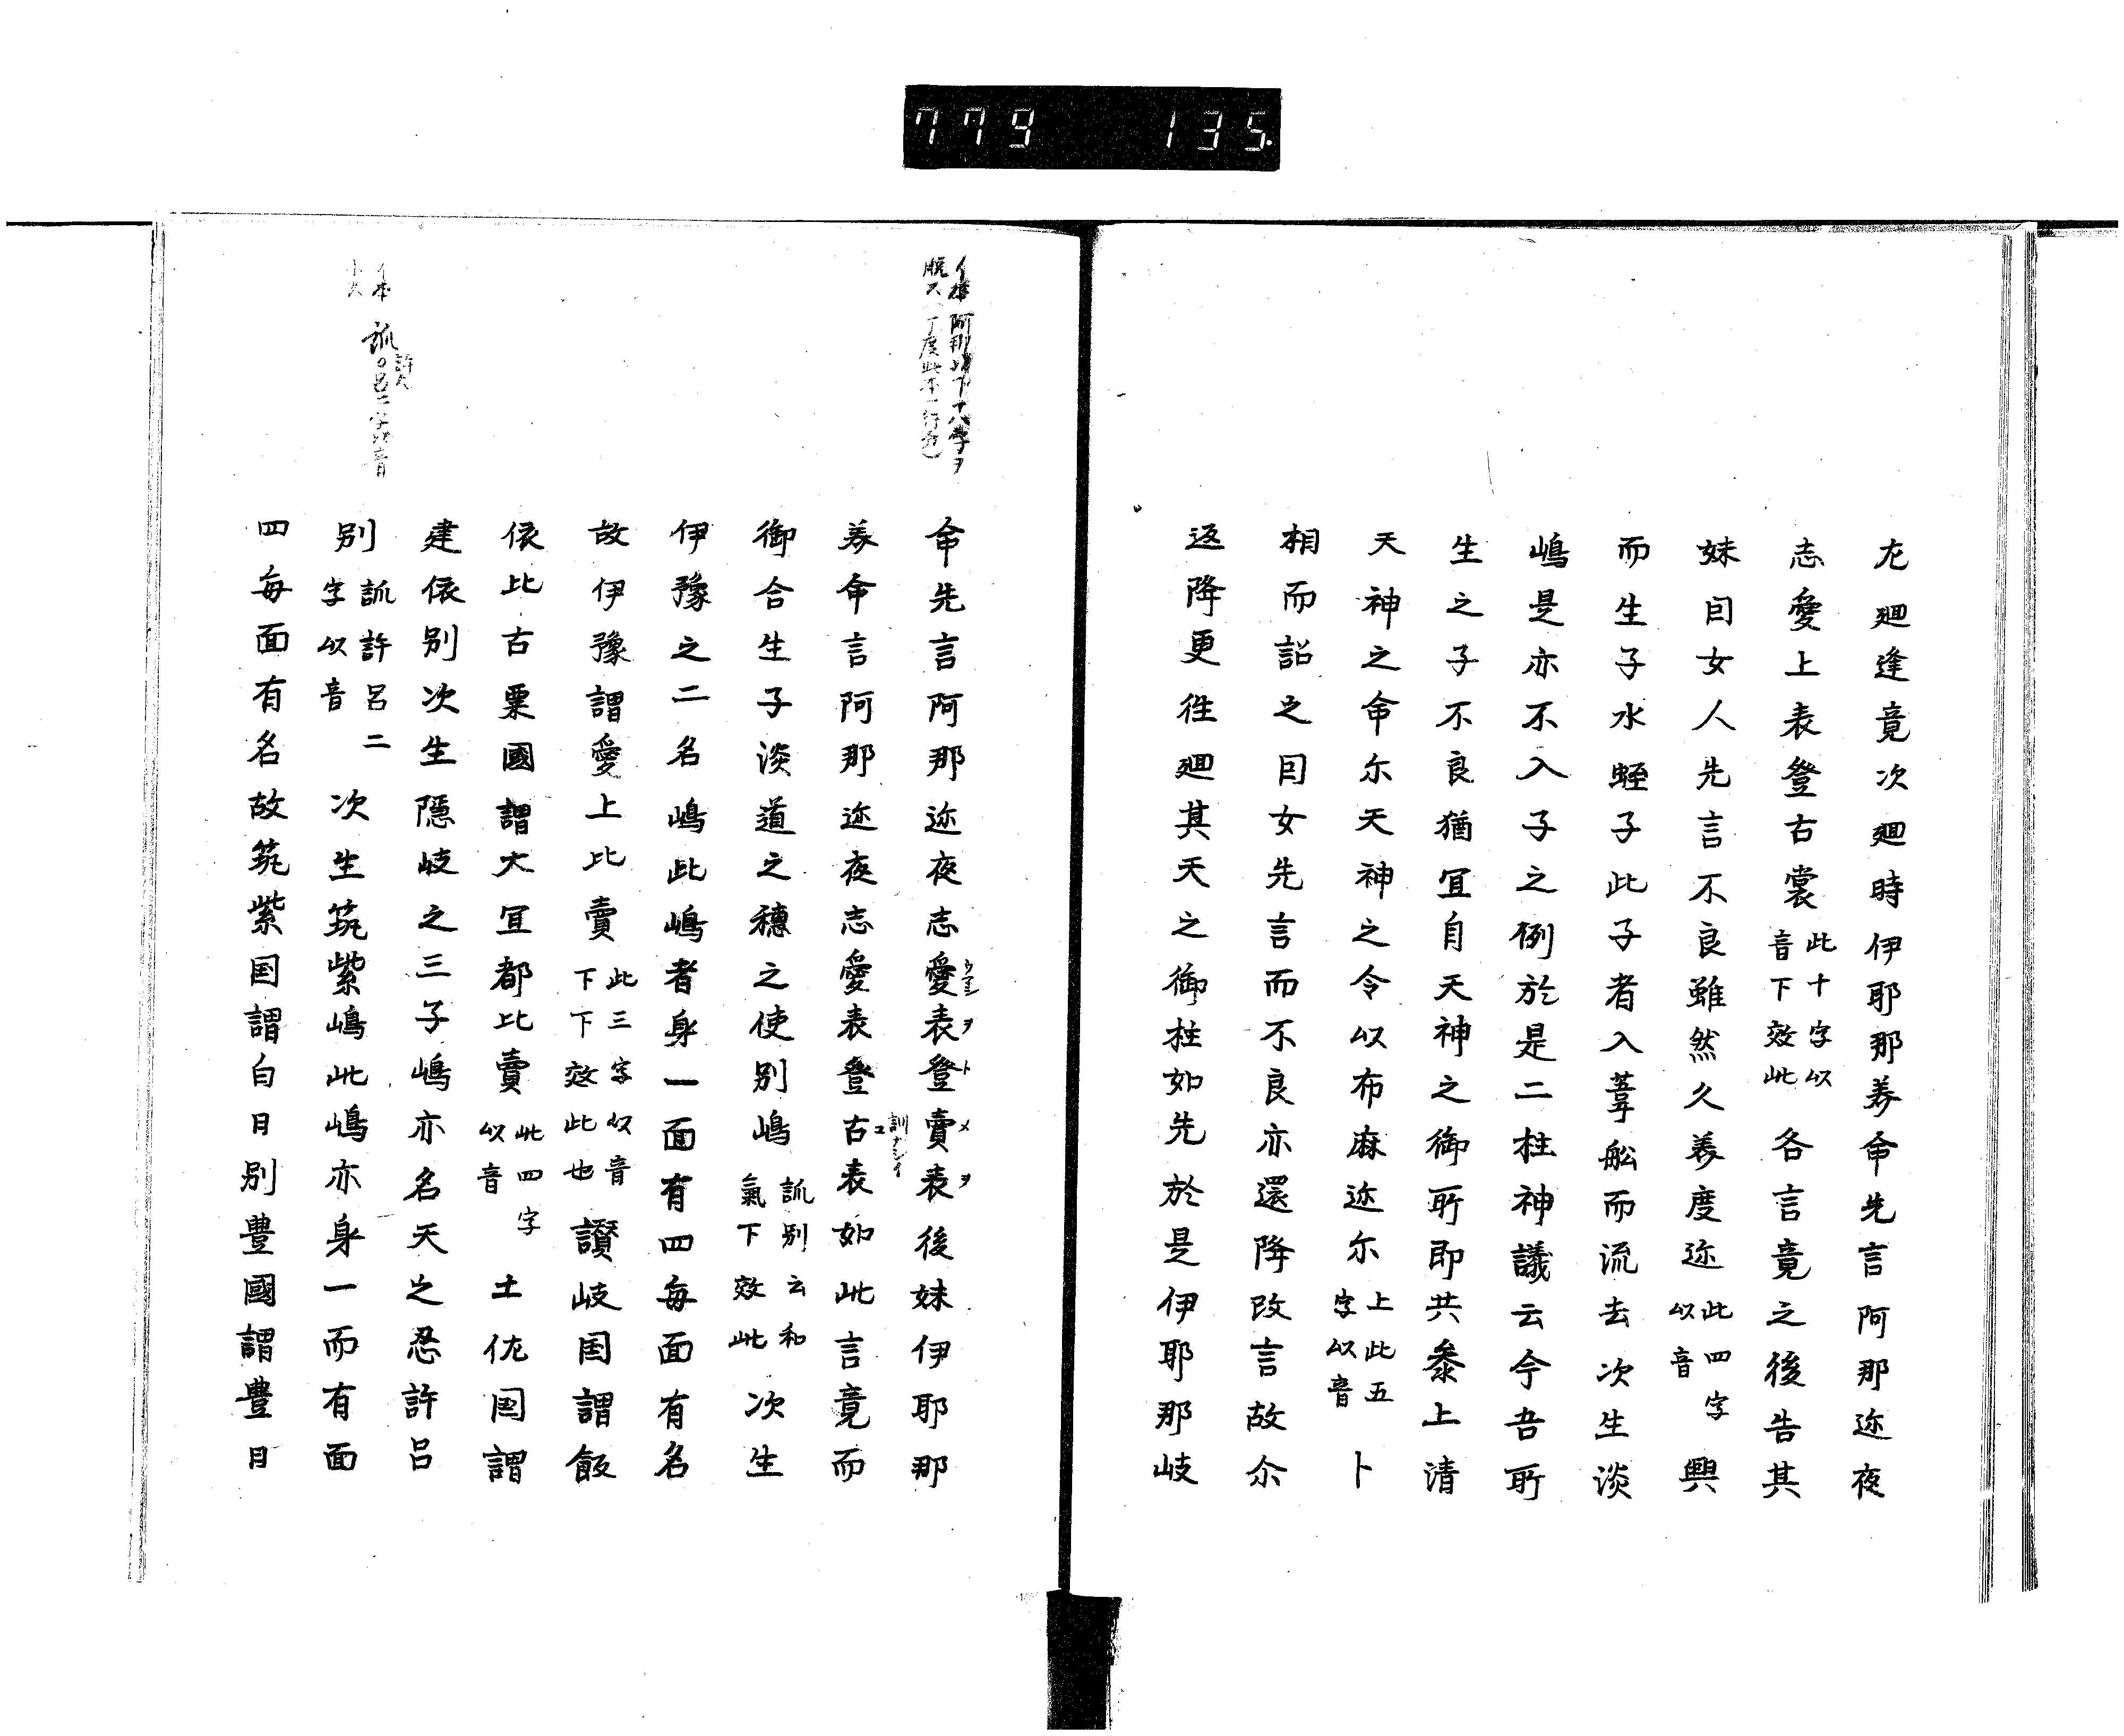 779 135
尢廻逢竟次廻時伊耶那美命先言阿那迩夜
志愛上表登古裳此十字以音下效此各言竟之後告其
妹曰女人先言不良雖然久美度迩此四字以音興
而生子水蛭子此子者入葦舩而流去次生淡
嶋是亦不入子之例於是二柱神議云今吾所
生之子不良猶冝自天神之御所即共叅上清
天神之命尓天神之令以布麻迩尓上此五字以音卜
相而詔之曰女先言而不良亦還降改言故尒
返降更徃廻其天之御柱如先於是伊耶那岐
命先言阿那迩夜志愛表登賣表後妹伊耶那
美命言阿那迩夜志愛表登古表如此言竟而
御合生子淡道之穗之使別嶋訙別云和氣下效此次生
伊豫之二名嶋此嶋者身一面有四毎面有名
故伊豫謂愛上比賣此三字以音下下效此也讃岐国謂飯
依比古粟國謂大冝都比賣此四字以音土佐国謂
建依別次生隱岐之三子嶋亦名天之忍許呂
別訙許呂二字以音次生筑紫嶋此嶋亦身一而有面
四毎面有名故筑紫国謂白日別豊國謂豊日
イ本阿那以下十八字ヲ
脱ス
イ本